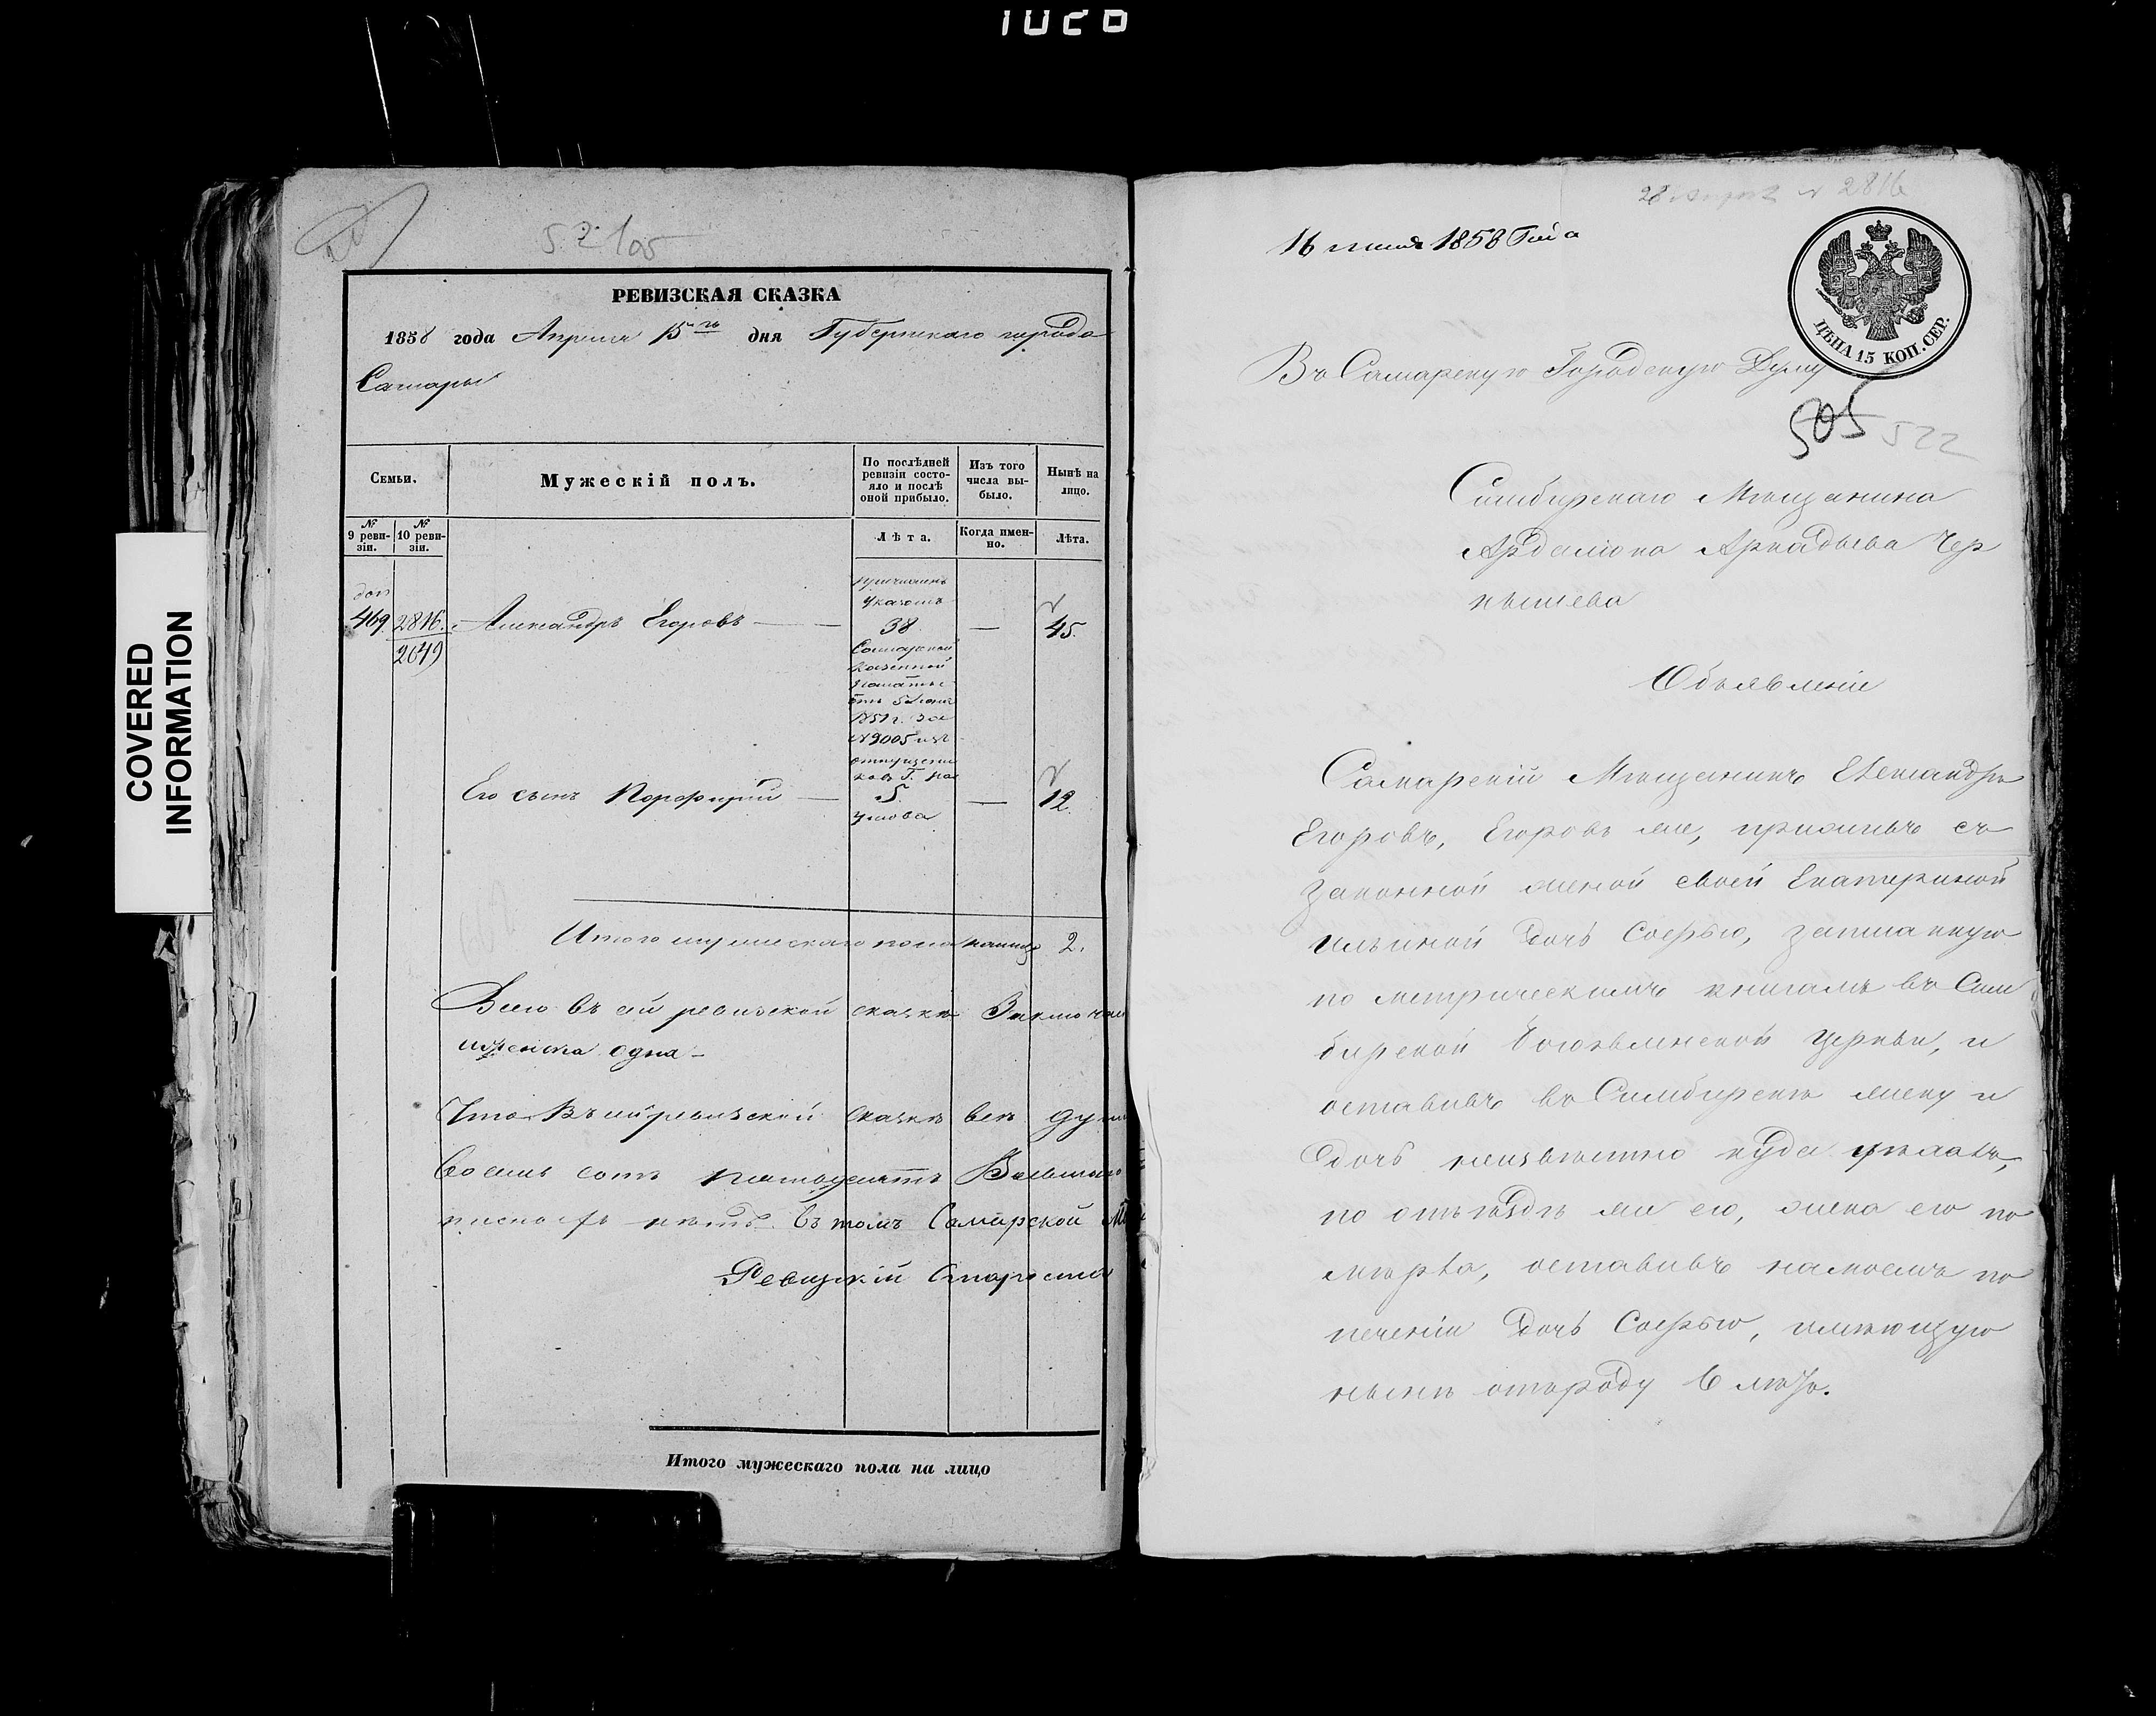 1026
COVERED
INFORMATION
52 105
РЕВИЗСКАЯ СКАЗКА
1858 года Апреля 15го дня Губернскаго города
Самары
Семьи.
Мужескій полъ.
По послѣдней ревизіи состояло и послѣ оной прибыло.
Изъ того числа выбыло.
Нынѣ на лицо.
№ 9 ревизіи.
№ 10 ревизіи.
Лѣта.
Когда именно.
Лѣта.
доп
469. 2816. Александръ Егоровъ — — 38 — 45.
2649
причисленъ
указомъ
Самарской
Казенной
палаты
1851 г. за
№ 9005 изъ
Его сынъ Порфирій — 5. — 12.
Итого мужескаго пола налицо 2.
Всего въ сей ревизской сказкѣ
одна
Что въ сей ревизской сказкѣ всѣ
восемь сотъ пятьдесятъ
нѣтъ. въ томъ Самарской
Ревизскій Староста
Итого мужескаго пола на лицо
2816
16 1858 Года
ЦѢНА 15 КОП. СЕР.
Въ Самарскую Городскую Думу
505 522
Симбирскаго Мѣщанина
Ардаліона Аркадьева Чер
нышева
Объявленіе
Самарскій Мѣщанинъ Александръ
Егоровъ, Егоровъ же, приживъ съ
законной женой своей Екатериной
Ильиной дочь Софью, записанную
по метрическимъ книгамъ въ Сим
бирской Богоявленской церкви, и
оставивъ въ Симбирскѣ жену и
дочь неизвѣстно куда уѣхалъ,
по отъѣздѣ же его, жена его по
мѣрла, оставивъ на моемъ по
печеніи дочь Софью, имѣющую
нынѣ отъ роду 6 лѣтъ.